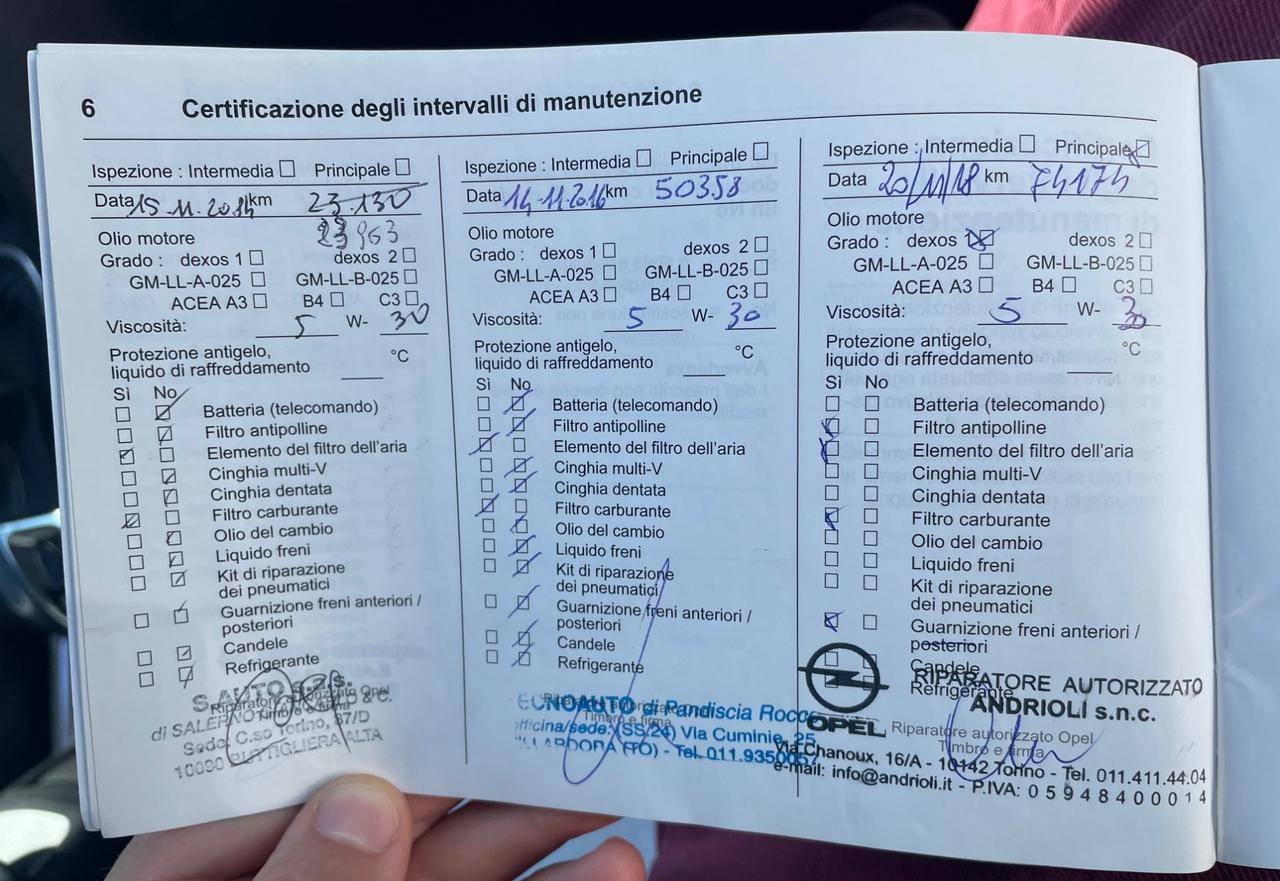 6 Certificazione degli intervalli di manutenzione
Ispezione : Intermedia Principale
Data 15-11-2014 km 23.130
23963
Olio motore
Grado : dexos 1 dexos 2
GM-LL-A-025 GM-LL-B-025
ACEA A3 B4 C3
Viscosità: 5 W- 30
Protezione antigelo, °C
liquido di raffreddamento
Sì No
Batteria (telecomando)
Filtro antipolline
Elemento del filtro dell'aria
Cinghia multi-V
Cinghia dentata
Filtro carburante
Olio del cambio
Liquido freni
Kit di riparazione
dei pneumatici
Guarnizione freni anteriori /
posteriori
Candele
Refrigerante
S. AUTO
Riparatore autorizzato Opel
Timbro e firma
di SALERNO & C.
Sede: C.so Torino, 67/D
10090 BUTTIGLIERA ALTA
Ispezione : Intermedia Principale
Data 14-11-2016 km 50358
Olio motore
Grado : dexos 1 dexos 2
GM-LL-A-025 GM-LL-B-025
ACEA A3 B4 C3
Viscosità: 5 W- 30
Protezione antigelo, °C
liquido di raffreddamento
Sì No
Batteria (telecomando)
Filtro antipolline
Elemento del filtro dell'aria
Cinghia multi-V
Cinghia dentata
Filtro carburante
Olio del cambio
Liquido freni
Kit di riparazione
dei pneumatici
Guarnizione freni anteriori /
posteriori
Candele
Refrigerante
ECNOAUTO di Pandiscia Rocco
Timbro e firma
fficina/sede: (SS/24) Via Cuminie, 25
LARDORA (TO) - Tel. 011.9350057
Ispezione : Intermedia Principale
Data 20/11/18 km 74174
Olio motore
Grado : dexos 1 dexos 2
GM-LL-A-025 GM-LL-B-025
ACEA A3 B4 C3
Viscosità: 5 W- 30
Protezione antigelo, °C
liquido di raffreddamento
Sì No
Batteria (telecomando)
Filtro antipolline
Elemento del filtro dell'aria
Cinghia multi-V
Cinghia dentata
Filtro carburante
Olio del cambio
Liquido freni
Kit di riparazione
dei pneumatici
Guarnizione freni anteriori /
posteriori
Candele
Refrigerante
RIPARATORE AUTORIZZATO
ANDRIOLI s.n.c.
OPEL Riparatore autorizzato Opel
Timbro e firma
Via Chanoux, 16/A - 10142 Torino - Tel. 011.411.44.04
e-mail: info@andrioli.it - P.IVA: 05948400014